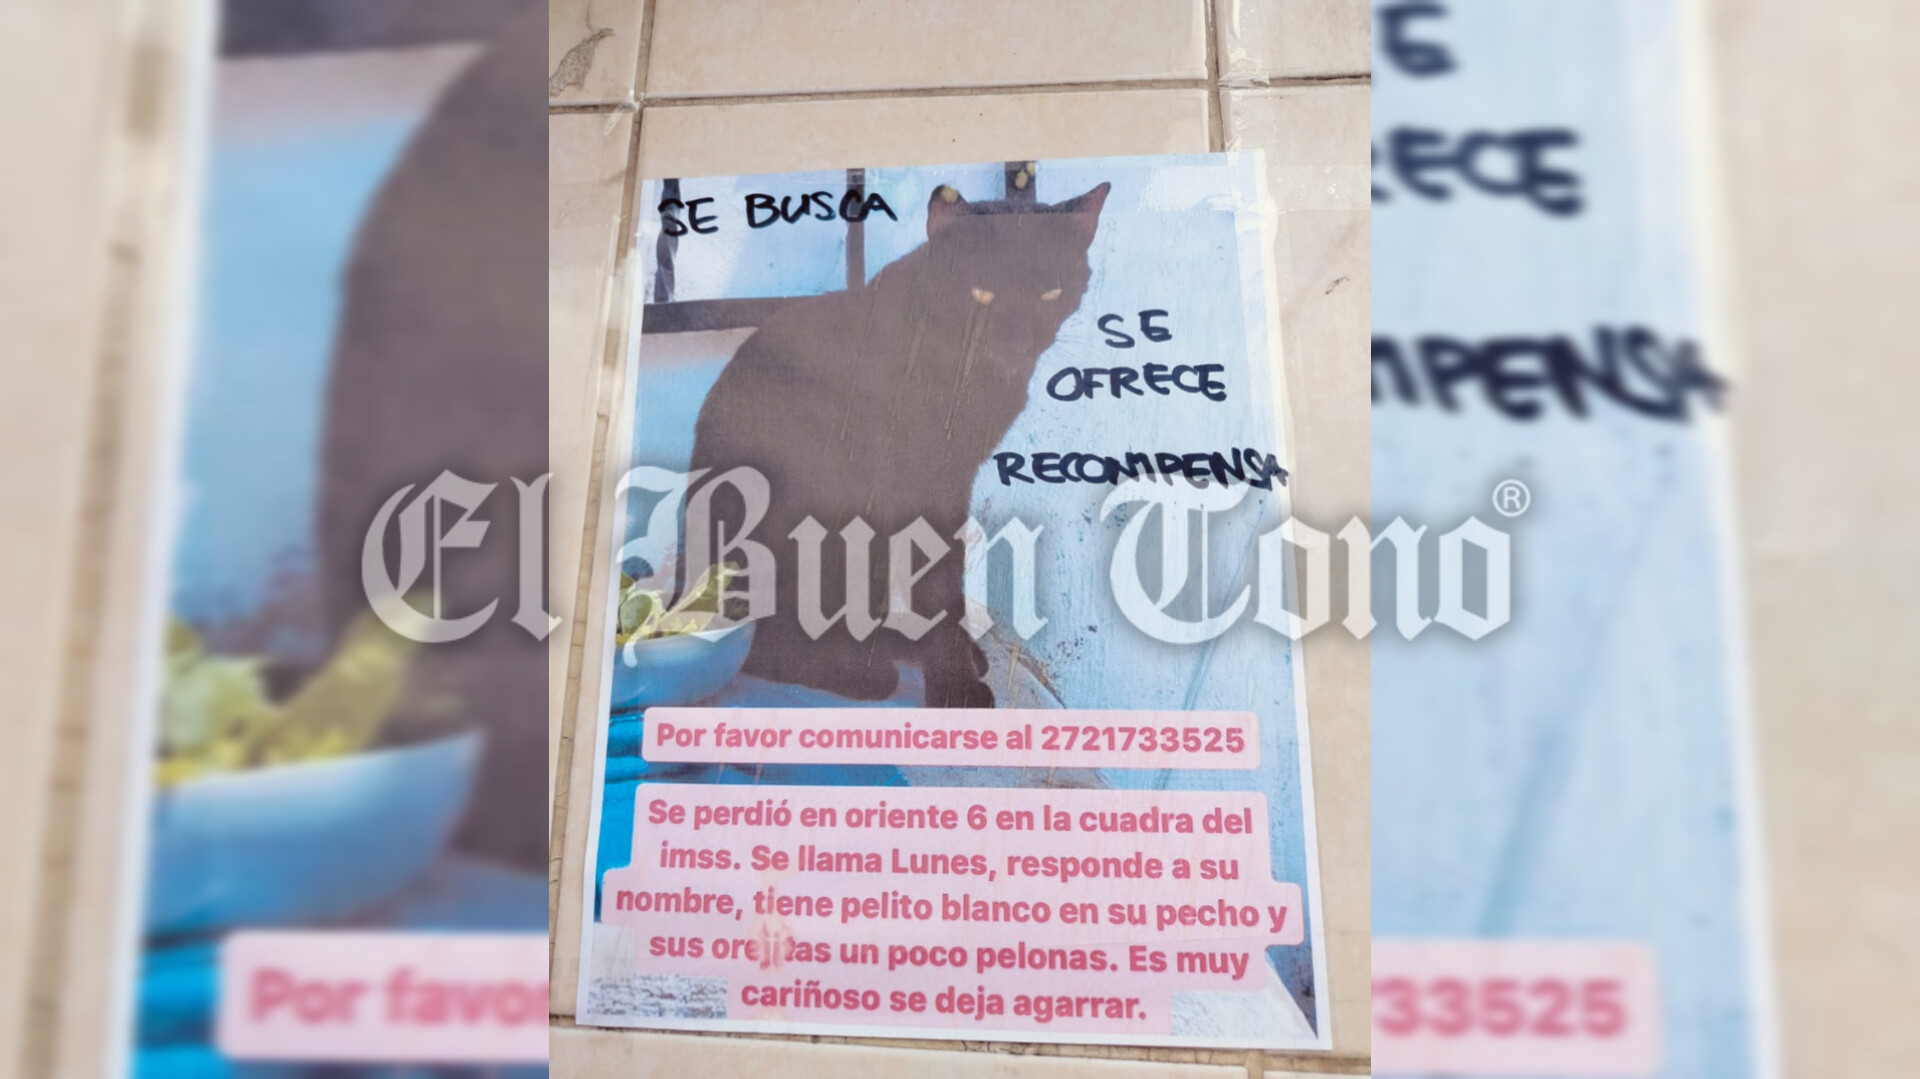 SE BUSCA
SE
OFRECE
RECOMPENSA
El Buen Tono®
Por favor comunicarse al 2721733525
Se perdió en oriente 6 en la cuadra del
imss. Se llama Lunes, responde a su
nombre, tiene pelito blanco en su pecho y
sus orejitas un poco pelonas. Es muy
cariñoso se deja agarrar.
E
RECE
MPENSA
Por favor
33525